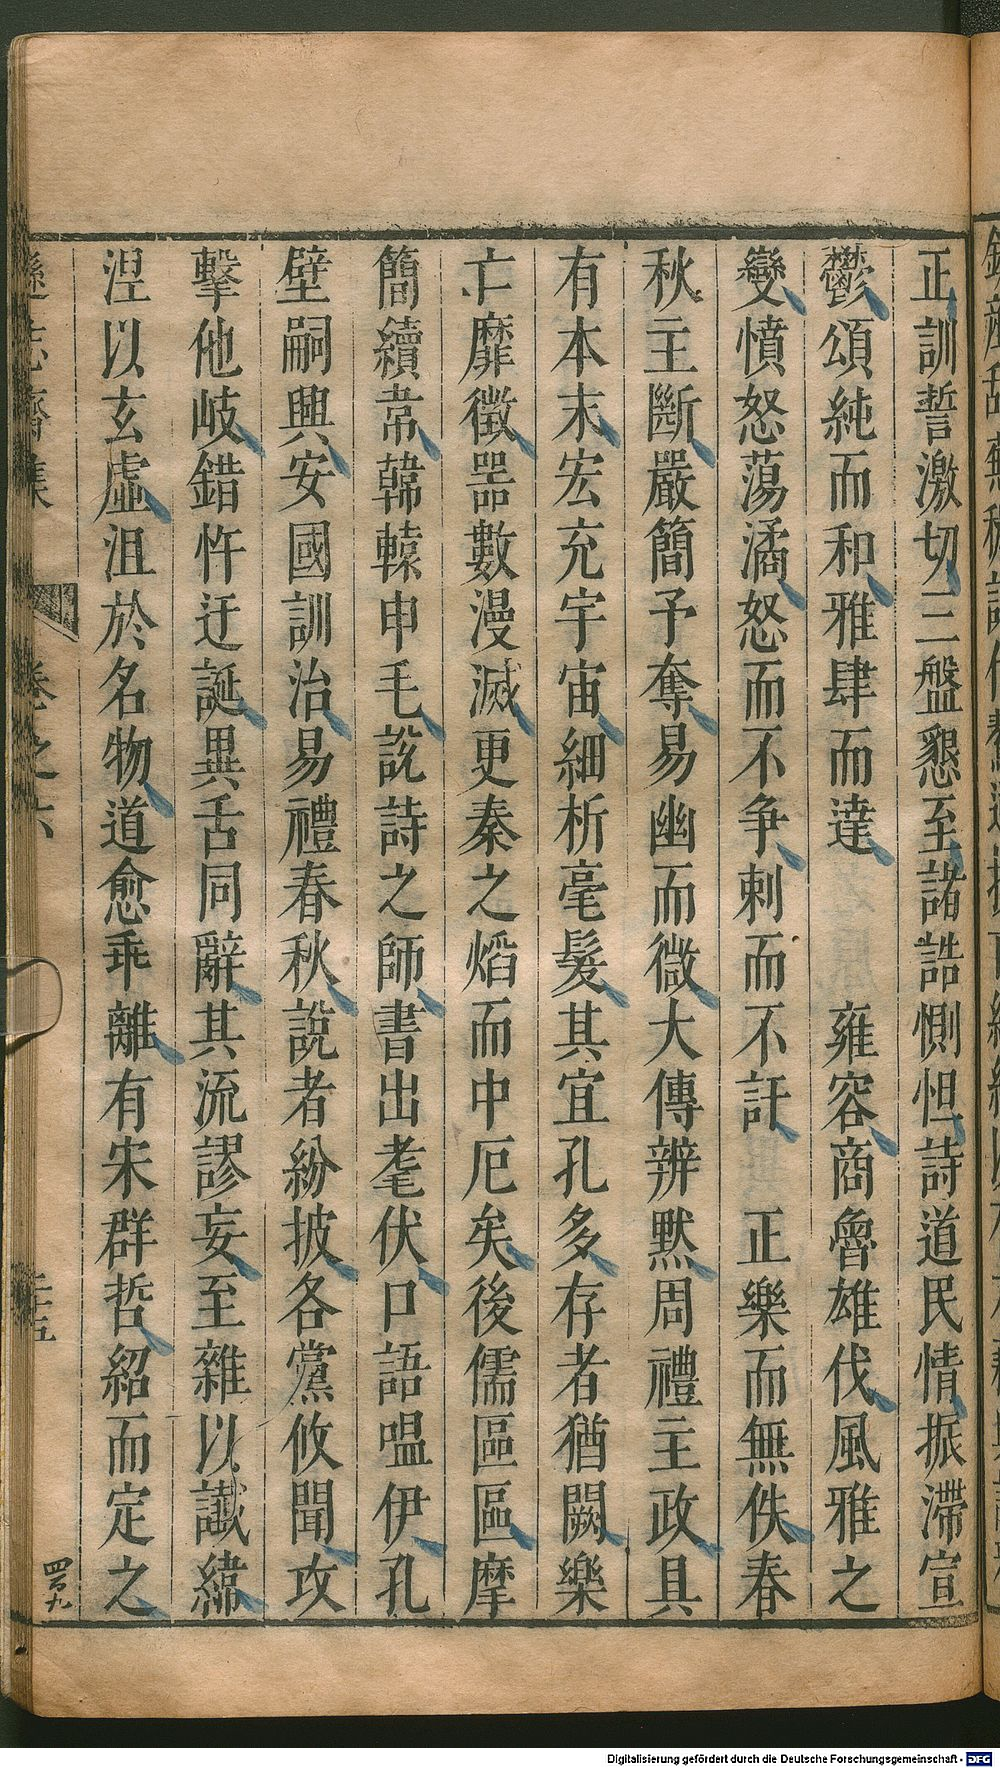 正訓誓激切三盤懇至諸誥惻怛詩道民情振滯宣
鬱頌純而和雅肆而達　　雍容商魯雄伐風雅之
變憤怒蕩潏怒而不争刺而不訐　正樂而無佚春
秋主斷嚴簡予奪易幽而微大傳辨黙周禮主政具
有本末宏充宇宙細析毫髮其宜孔多存者猶闕樂
亡靡徵器數漫滅更秦之焰而中厄矣後儒區區摩
簡續韋韓轅申毛説詩之師書出耄伏口語嗢伊孔
壁嗣興安國訓治易禮春秋説者紛披各黨攸聞攻
擊他岐錯忤迂誕異舌同辭其流謬妄至雜以讖緯
湼以玄虛沮於名物道愈乖離有宋群哲紹而定之
遜志齋集　卷之六　三五
四百九
Digitalisierung gefördert durch die Deutsche Forschungsgemeinschaft - DFG